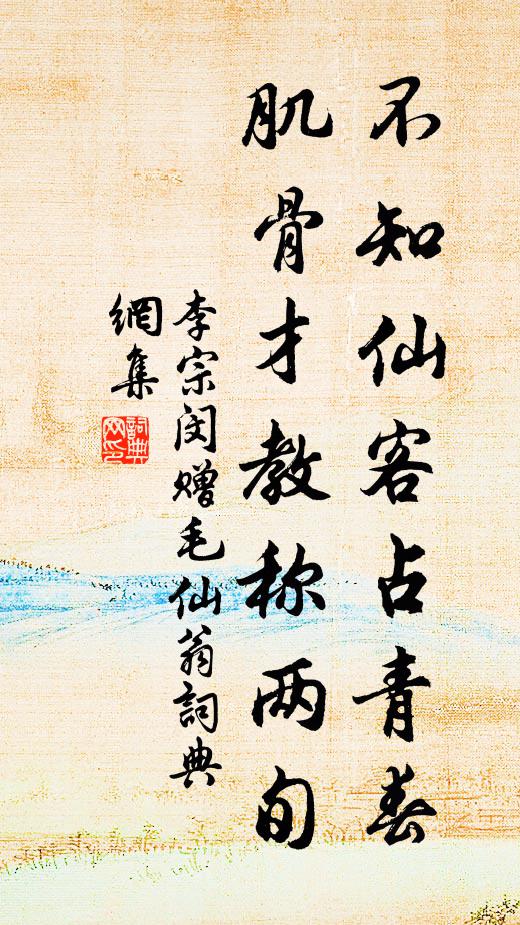 不知仙客占青春
肌骨才教称两旬
李宗闵赠毛仙翁詞典
網集
詞典网印